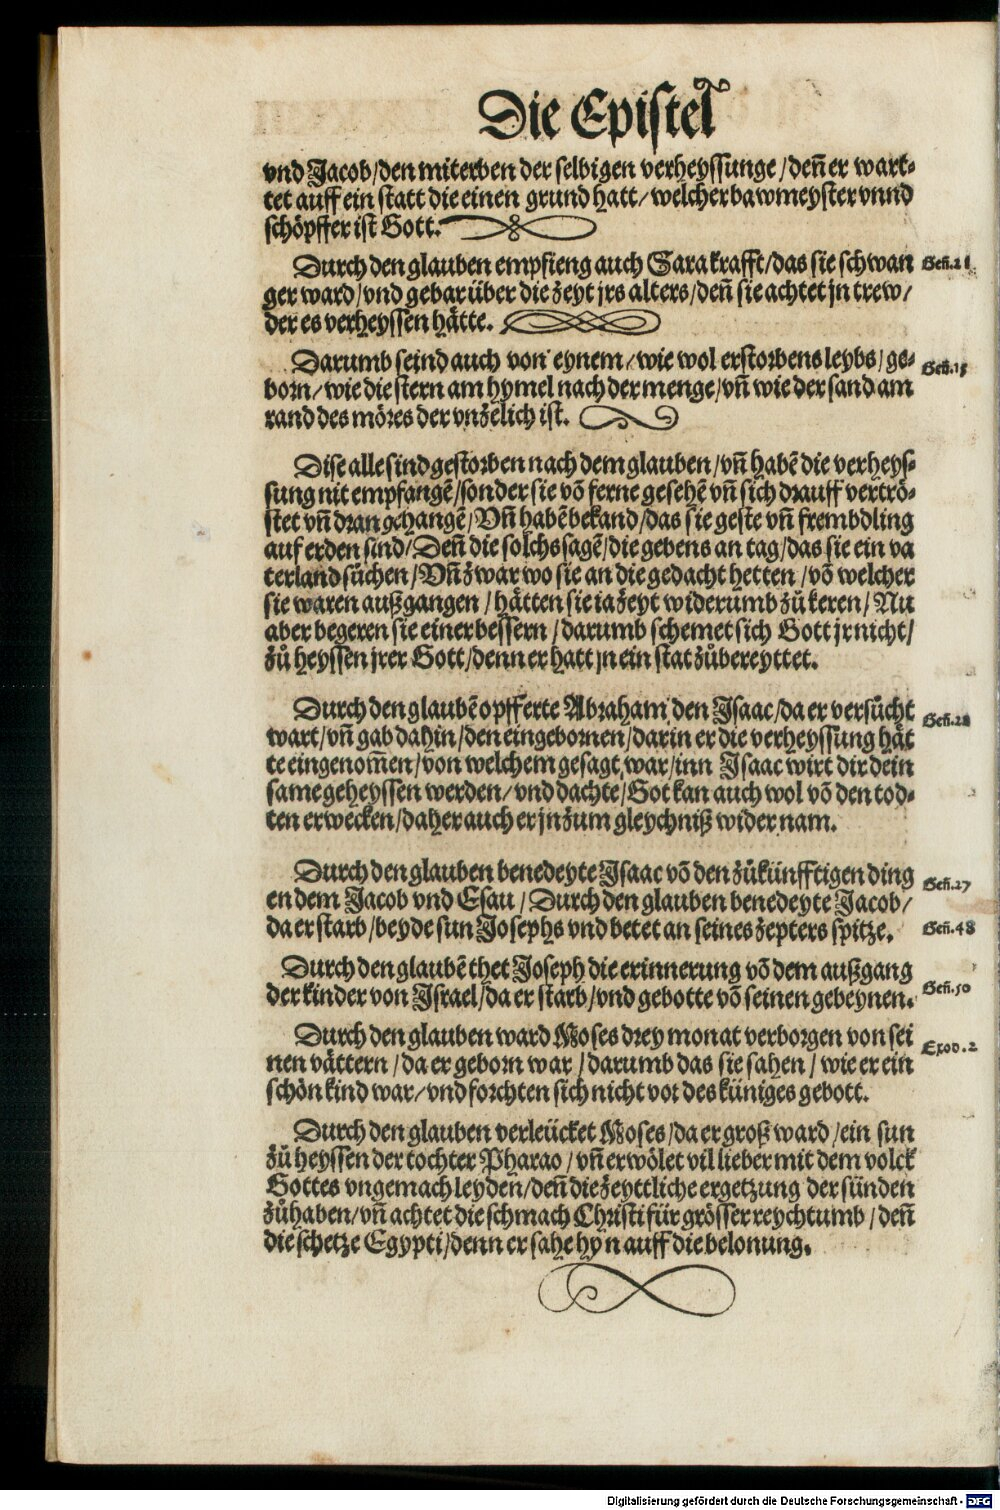 Die Epistel
vnd Jacob/den miterben der selbigen verheyssunge/deñ er wart-
tet auff ein statt die einen grund hatt/welcher bawmeyster vnnd
schöpffer ist Gott.
Durch den glauben empfieng auch Sara krafft/das sie schwan
Geñ.21.
ger ward/vnd gebar über die zeyt jrs alters/deñ sie achtet jn trew/
der es verheyssen hätte.
Darumb seind auch von eynem/wie wol erstorbens leybs/ge-
Geñ.15
born/wie die stern am hymel nach der menge/vñ wie der sand am
rand des möres der vnzelich ist.
Dise alle sind gestorben nach dem glauben/vñ habē die verheys-
sung nit empfangē/sonder sie vō ferne gesehē vñ sich drauff vertrö-
stet vñ dran gehangē/Vñ habē bekand/das sie geste vñ frembdling
auf erden sind/Deñ die solchs sagē/die gebens an tag/das sie ein va
terland sůchen/Vñ zwar wo sie an die gedacht hetten/vō welcher
sie waren außgangen/hätten sie ia zeyt widerumb zů keren/Nu
aber begeren sie einer bessern/darumb schemet sich Gott jr nicht/
zů heyssen jrer Gott/denn er hatt jn ein stat zůbereyttet.
Durch den glaubē opfferte Abraham den Isaac/da er versůcht
Geñ.28
wart/vñ gab dahin/den eingebornen/darin er die verheyssung hät
te eingenom̄en/von welchem gesagt war/inn Isaac wirt dir dein
same geheyssen werden/vnd dachte/Got kan auch wol vō den tod-
ten erwecken/daher auch er jn zum gleychniß wider nam.
Durch den glauben benedeyte Isaac vō den zůkünfftigen ding
Geñ.27
en dem Jacob vnd Esau/Durch den glauben benedeyte Jacob/
da er starb/beyde sun Josephs vnd betet an seines zepters spitze.
Geñ.48
Durch den glaubē thet Joseph die erinnerung vō dem außgang
der kinder von Israel/da er starb/vnd gebotte vō seinen gebeynen.
Geñ.50
Durch den glauben ward Moses drey monat verborgen von sei
Exod.2
nen vättern/da er geborn war/darumb das sie sahen/wie er ein
schön kind war/vnd forchten sich nicht vor des küniges gebott.
Durch den glauben verleücket Moses/da er groß ward/ein sun
zů heyssen der tochter Pharao/vñ erwölet vil lieber mit dem volck
Gottes vngemach leyden/deñ die zeyttliche ergetzung der sünden
zůhaben/vñ achtet die schmach Christi für grösser reychtumb/deñ
die schetze Egypti/denn er sahe hyn auff die belonung.
Digitalisierung gefördert durch die Deutsche Forschungsgemeinschaft - DFG